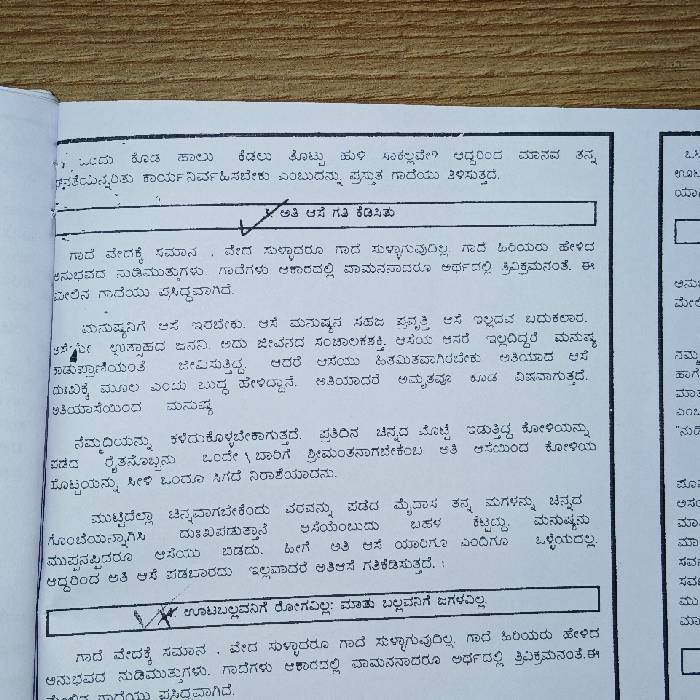 ಒಂದು ಕೊಡ ಹಾಲು ಕೆಡಲು ತೊಟ್ಟು ಹುಳಿ ಸಾಕಲ್ಲವೇ? ಆದ್ದರಿಂದ ಮಾನವ ತನ್ನ
ಕಾರ್ಯನಿರ್ವಹಿಸಬೇಕು ಎಂಬುದನ್ನು ಪ್ರಸ್ತುತ ಗಾದೆಯು ತಿಳಿಸುತ್ತದೆ.
ಅತಿ ಆಸೆ ಗತಿ ಕೆಡಿಸಿತು
ಗಾದೆ ವೇದಕ್ಕೆ ಸಮಾನ . ವೇದ ಸುಳ್ಳಾದರೂ ಗಾದೆ ಸುಳ್ಳಾಗುವುದಿಲ್ಲ. ಗಾದೆ ಹಿರಿಯರು ಹೇಳಿದ
ಅನುಭವದ ನುಡಿಮುತ್ತುಗಳು. ಗಾದೆಗಳು ಆಕಾರದಲ್ಲಿ ವಾಮನನಾದರೂ ಅರ್ಥದಲ್ಲಿ ತ್ರಿವಿಕ್ರಮನಂತೆ. ಈ
ಮೇಲಿನ ಗಾದೆಯು ಪ್ರಸಿದ್ಧವಾಗಿದೆ.
ಮನುಷ್ಯನಿಗೆ ಆಸೆ ಇರಬೇಕು. ಆಸೆ ಮನುಷ್ಯನ ಸಹಜ ಪ್ರವೃತ್ತಿ ಆಸೆ ಇಲ್ಲದವ ಬದುಕಲಾರ.
ಉತ್ಸಾಹದ ಜನನಿ. ಅದು ಜೀವನದ ಸಂಚಾಲಕಶಕ್ತಿ. ಆಸೆಯ ಆಸರೆ ಇಲ್ಲದಿದ್ದರೆ ಮನುಷ್ಯ
ಕಾಡುಪ್ರಾಣಿಯಂತೆ ಜೀವಿಸುತ್ತಿದ್ದ. ಆದರೆ ಆಸೆಯು ಹಿತಮಿತವಾಗಿರಬೇಕು ಅತಿಯಾದ ಆಸೆ
ದುಃಖಕ್ಕೆ ಮೂಲ ಎಂದು ಬುದ್ಧ ಹೇಳಿದ್ದಾನೆ. ಅತಿಯಾದರೆ ಅಮೃತವೂ ಕೂಡ ವಿಷವಾಗುತ್ತದೆ.
ಅತಿಯಾಸೆಯಿಂದ ಮನುಷ್ಯ
ನೆಮ್ಮದಿಯನ್ನು ಕಳೆದುಕೊಳ್ಳಬೇಕಾಗುತ್ತದೆ. ಪ್ರತಿದಿನ ಚಿನ್ನದ ಮೊಟ್ಟೆ ಇಡುತ್ತಿದ್ದ ಕೋಳಿಯನ್ನು
ಪಡೆದ ರೈತನೊಬ್ಬನು ಒಂದೇ ಬಾರಿಗೆ ಶ್ರೀಮಂತನಾಗಬೇಕೆಂಬ ಅತಿ ಆಸೆಯಿಂದ ಕೋಳಿಯ
ಹೊಟ್ಟೆಯನ್ನು ಸೀಳಿ ಒಂದೂ ಸಿಗದೆ ನಿರಾಶೆಯಾದನು.
ಮುಟ್ಟಿದೆಲ್ಲಾ ಚಿನ್ನವಾಗಬೇಕೆಂದು ವರವನ್ನು ಪಡೆದ ಮೈದಾಸ ತನ್ನ ಮಗಳನ್ನು ಚಿನ್ನದ
ಗೊಂಬೆಯನ್ನಾಗಿಸಿ ದುಃಖಪಡುತ್ತಾನೆ ಆಸೆಯೆಂಬುದು ಬಹಳ ಕೆಟ್ಟದ್ದು. ಮನುಷ್ಯನು
ಮುಪ್ಪನಪ್ಪಿದರೂ ಆಸೆಯು ಬಿಡದು. ಹೀಗೆ ಅತಿ ಆಸೆ ಯಾರಿಗೂ ಎಂದಿಗೂ ಒಳ್ಳೆಯದಲ್ಲ.
ಆದ್ದರಿಂದ ಅತಿ ಆಸೆ ಪಡಬಾರದು ಇಲ್ಲವಾದರೆ ಅತಿಆಸೆ ಗತಿಕೆಡಿಸುತ್ತದೆ.
ಊಟಬಲ್ಲವನಿಗೆ ರೋಗವಿಲ್ಲ: ಮಾತು ಬಲ್ಲವನಿಗೆ ಜಗಳವಿಲ್ಲ
ಗಾದೆ ವೇದಕ್ಕೆ ಸಮಾನ . ವೇದ ಸುಳ್ಳಾದರೂ ಗಾದೆ ಸುಳ್ಳಾಗುವುದಿಲ್ಲ. ಗಾದೆ ಹಿರಿಯರು ಹೇಳಿದ
ಅನುಭವದ ನುಡಿಮುತ್ತುಗಳು. ಗಾದೆಗಳು ಆಕಾರದಲ್ಲಿ ವಾಮನನಾದರೂ ಅರ್ಥದಲ್ಲಿ ತ್ರಿವಿಕ್ರಮನಂತೆ.ಈ
ಮೇಲಿನ ಗಾದೆಯು ಪ್ರಸಿದ್ಧವಾಗಿದೆ.